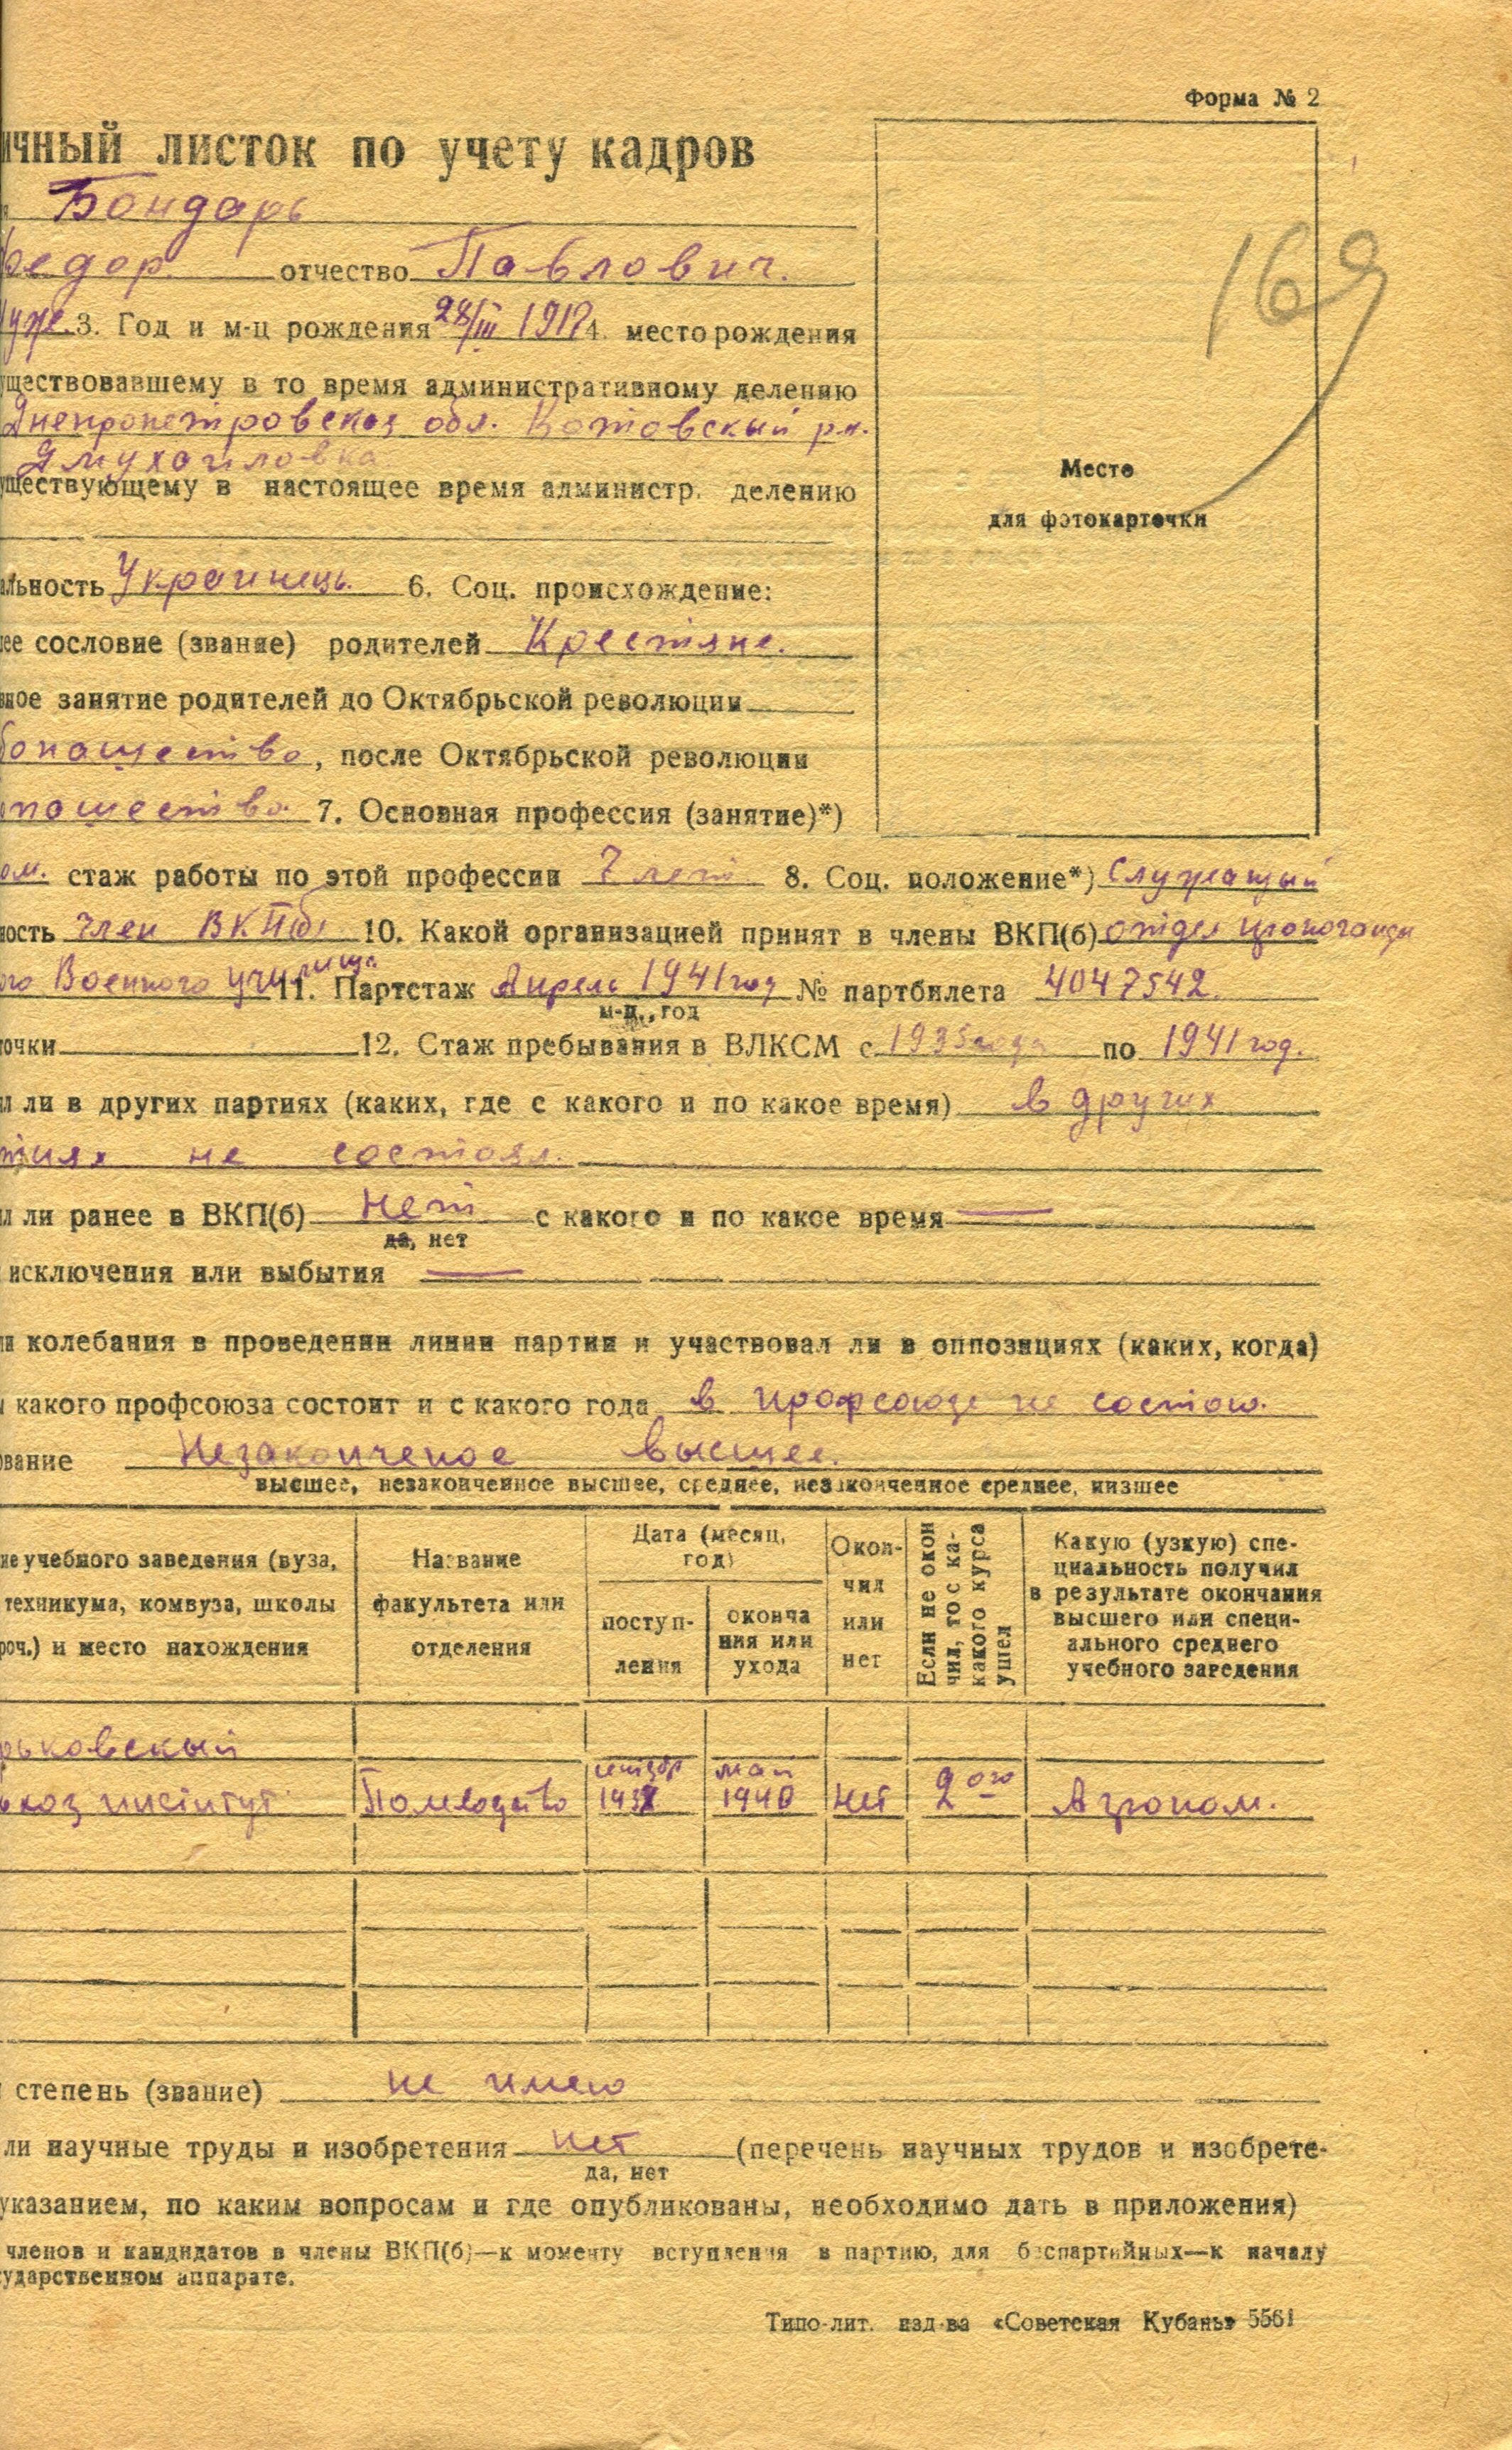 Форма № 2
ичный листок по учету кадров
я Бондарь
Федор отчество Павлович.
Муж. 3. Год и м-ц рождения 28/III 1917 4. место рождения
уществовавшему в то время административному делению
Днепропетровская обл. Котовский р-н.
169
Место
для фотокарточки
уществующему в настоящее время администр. делению
альность Украинець. 6. Соц. происхождение:
ее сословие (звание) родителей Крестяне.
вное занятие родителей до Октябрьской революции
бопашество, после Октябрьской революции
опашество. 7. Основная профессия (занятие)*)
ом. стаж работы по этой профессии 7 лет 8. Соц. положение*) Служащый
ность член ВКП(б) 10. Какой организацией принят в члены ВКП(б) отдел пропоганды
ого Военного училища 11. Партстаж Апрель 1941 год № партбилета 4047542.
м-ц., год
точки 12. Стаж пребывания в ВЛКСМ с 1935 года по 1941 год.
л ли в других партиях (каких, где с какого и по какое время) в других
тиях не состоял.
л ли ранее в ВКП(б) Нет с какого и по какое время —
да, нет
исключения или выбытия —
ли колебания в проведении линии партии и участвовал ли в оппозициях (каких, когда)
какого профсоюза состоит и с какого года в профсоюзе не состою.
ование Незаконченое высшее.
высшее, незаконченное высшее, среднее, незаконченное среднее, низшее
ие учебного заведения (вуза, техникума, комвуза, школы роч.) и место нахождения
Название факультета или отделения
Дата (месяц, год)
поступ-ления
оконча ния или ухода
Окон-чил или нет
Если не окон чил, то с ка-какого курса ушел
Какую (узкую) спе-
циальность получил
в результате окончания
высшего или специ-
ального среднего
учебного заведения
рьковский
хоз инсїитут Полеводство 1938 май 1940 Нет 2ого Агроном.
степень (звание) не имею
ли научные труды и изобретения нет (перечень научных трудов и изобрете-
да, нет
указанием, по каким вопросам и где опубликованы, необходимо дать в приложения)
членов и кандидатов в члены ВКП(б)—к моменту вступления в партию, для беспартийных—к началу
ударственном аппарате.
Типо-лит. изд-ва «Советская Кубань» 5561